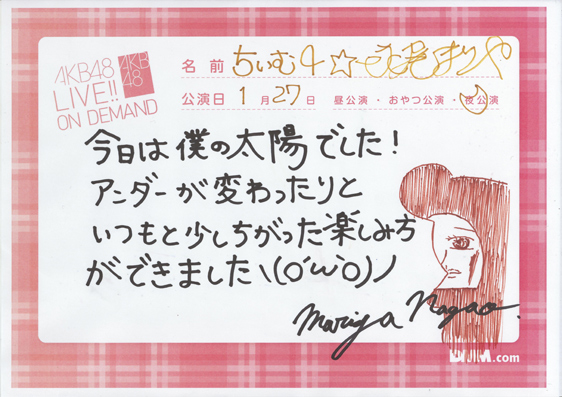 AKB48
LIVE!!
ON DEMAND
AKB
48
名前 ちいむ4☆ まりや
公演日 1月27日 昼公演・おやつ公演・夜公演
今日は僕の太陽でした！
アンダーが変わったりと
いつもと少しちがった楽しみ方
ができました\(O´ω`O)ノ
Mariya Nagao.
DMM.com